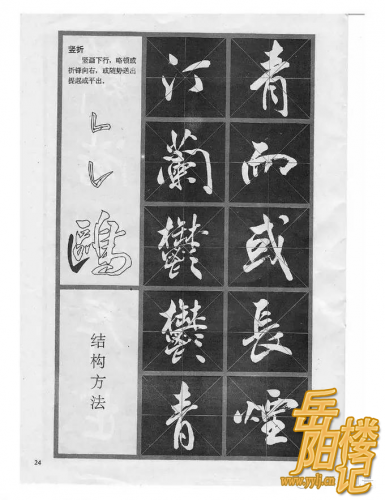 竖折
竖画下行，略顿或
折锋向右，或随势送出
提起或平出。
鷗
结构方法
汀蘭鬱鬱青
青而或長煙
24
岳阳楼记
www.yylj.cn